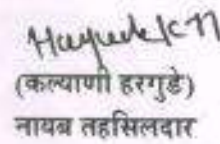 (कल्याणी हरगुडे)
नायब तहसिलदार